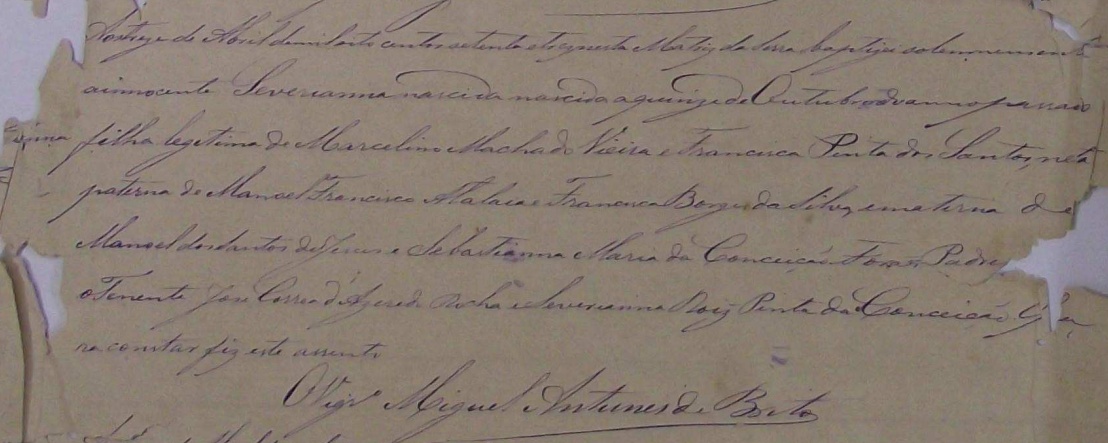 Aos treze de Abril de mil oito centos setenta e tres nesta Matriz da Serra baptizei solemnemente
a innocente Severianna nascida nascida a quinze de Outubro do anno passado
filha legitima de Marcelino Machado Vieira e Francisca Pinta dos Santos, neta
paterna de Manoel Francisco Atalaia e Francisca Borges da Silva, e materna de
Manoel dos Santos de Jesus e Sebastianna Maria da Conceição Forão Padr
o Tenente José Correa d'Azeredo Rocha e Severianna Roiz Pinta da Conceição
ra constar fiz este assento
O Vigr.º Miguel Antunes de Brito